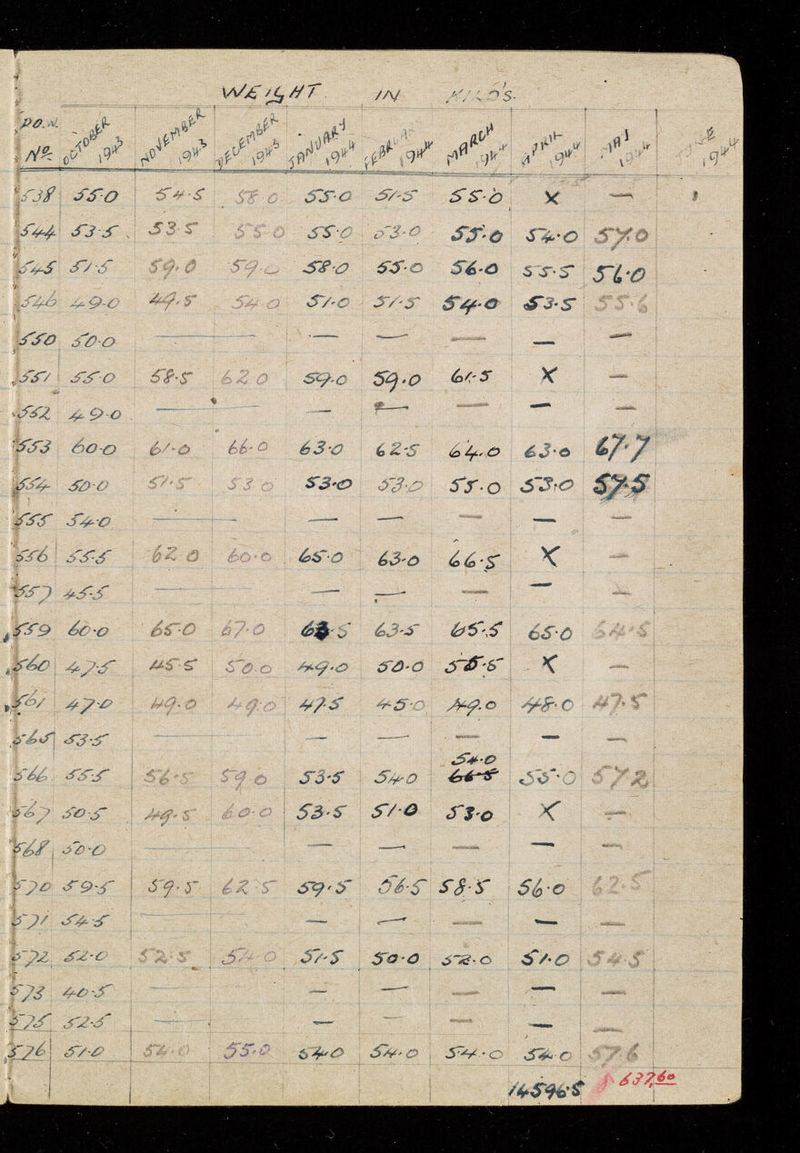 WEIGHT IN KILO'S.
P.O.W. No. OCTOBER 1943 NOVEMBER 1943 DECEMBER 1943 JANUARY 1944 FEBRUARY 1944 MARCH 1944 APRIL 1944 MAY 1944 JUNE 1944
538 55.0 54.5 58.0 55.0 51.5 55.0 X —
544 53.5 53.5 55.0 55.0 53.0 55.0 54.0 57.0
545 51.5 59.0 59.0 58.0 55.0 56.0 55.5 56.0
546 49.0 49.5 54.0 51.0 51.5 54.0 53.5 55.6
550 50.0 — — — — — — —
551 55.0 58.5 62.0 59.0 59.0 61.5 X —
552 49.0 — — — — — — —
553 60.0 61.0 66.0 63.0 62.5 64.0 63.0 67.7
554 50.0 51.5 53.0 53.0 53.0 55.0 53.0 57.5
555 54.0 — — — — — — —
556 55.5 62.0 60.0 65.0 63.0 66.5 X —
557 45.5 — — — — — — —
559 60.0 65.0 67.0 63.5 63.5 65.5 65.0 64.5
560 47.5 45.5 50.0 49.0 50.0 55.5 X —
561 47.0 49.0 49.0 47.5 45.0 49.0 48.0 47.5
565 53.5 — — — — — — —
54.0
566 55.5 56.5 59.0 53.5 54.0 66.5 55.0 57.2
567 50.5 49.5 60.0 53.5 51.0 53.0 X —
568 50.0 — — — — — — —
570 59.5 59.5 62.5 59.5 56.5 58.5 56.0 62.5
571 54.5 — — — — — — —
572 52.0 52.5 54.0 51.5 50.0 52.0 51.0 54.5
573 40.5 — — — — — — —
575 52.5 — — — — — — —
576 51.0 54.0 55.0 54.0 54.0 54.0 54.0 57.6
14596.5 637,60